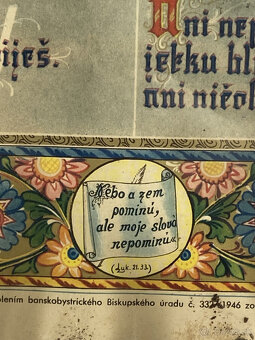 Ani nep
iješ.
jekku bl
ani ničo
Nebo a zem
pominú,
ale moje slová
nepominu.
(Luk. 21.33.)
olením banskobystrického Biskupského úradu č. 332 1946 zo